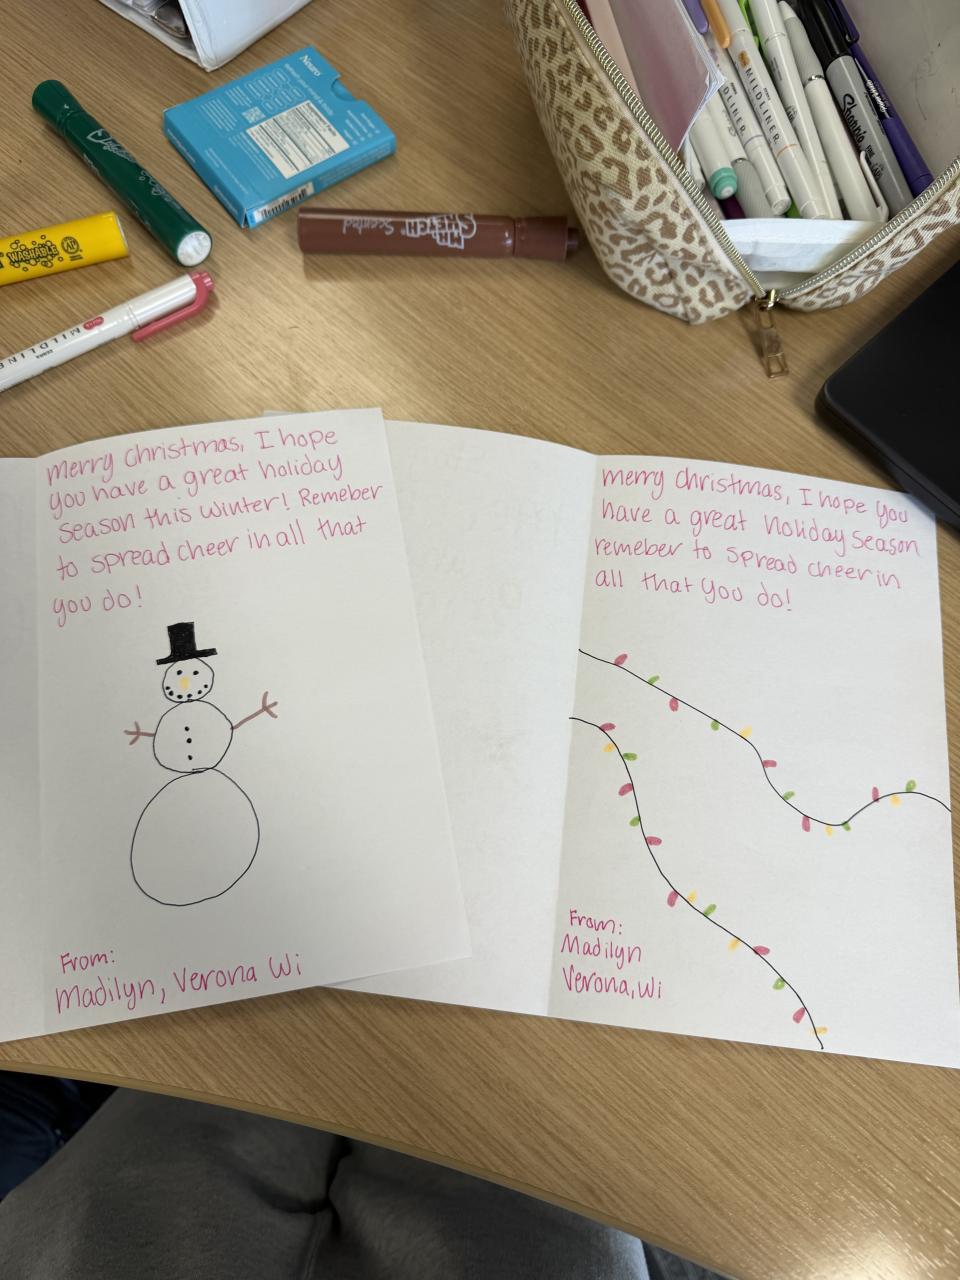 Neuro
WASHABLE
MILDLINER
Mr. SKETCH Scented
MILDLINER
MILDLINER
Sharpie
merry christmas, I hope
you have a great holiday
season this winter! Remeber
to spread cheer in all that
you do!
From:
Madilyn, Verona Wi
merry christmas, I hope you
have a great holiday season
remeber to spread cheer in
all that you do!
From:
Madilyn
Verona, Wi